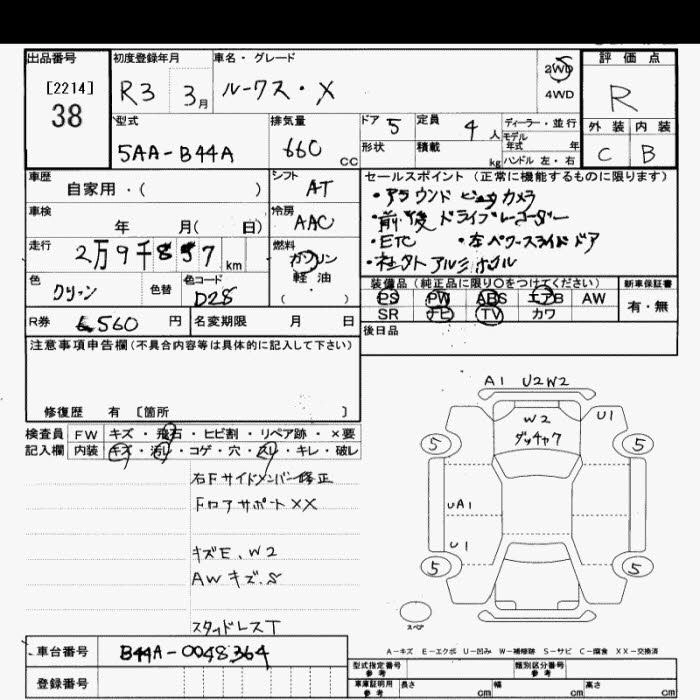 出品番号 初度登録年月 車名・グレード 評価点
[2214] 38 R3 3月 ルークス・X 2WD 4WD R
型式 排気量 ドア 5 定員 4人 ディーラー・並行 外装 内装
5AA-B44A 660 CC 形状 積載 kg モデル年式 年 ハンドル 左・右 C B
車歴 シフト セールスポイント(正常に機能するものに限ります)
自家用・( ) AT ・アラウンドビューカメラ
車検 冷房 ・前後ドライブレコーダー
年 月( 日) AAC ・ETC ・左パワースライドドア
走行 燃料 ガソリン 軽油 ( )
2万9千857km ・社外アルミホイル
色 色替 色コード 装備品(純正品に限り○をつけてください) 新車保証書
グリーン D28 PS PW ABS エアB AW 有・無
R券 6560円 名変期限 月 日 SR ナビ TV カワ
注意事項申告欄(不具合内容等は具体的に記入して下さい) 後日品
修復歴 有 [箇所 ]
検査員 FW キズ・飛石・ヒビ割・リペア跡・×要
記入欄 内装 キズ・汚レ・コゲ・穴・スレ・キレ・破レ
右Fサイドメンバー修正
Fロアサポート XX
キズE、W2
AWキズ.S
スタッドレスT
A1 U2W2
W2 U1
ダッチャク
5 5
UA1
U1
5 5
スペア
A-キズ E-エクボ U-凹み W-補修跡 S-サビ C-腐食 XX-交換済
車台番号 B44A-0048364
登録番号
型式指定番号 参考 類別区分番号 参考
車庫証明用 参考 長さ cm 幅 cm 高さ cm